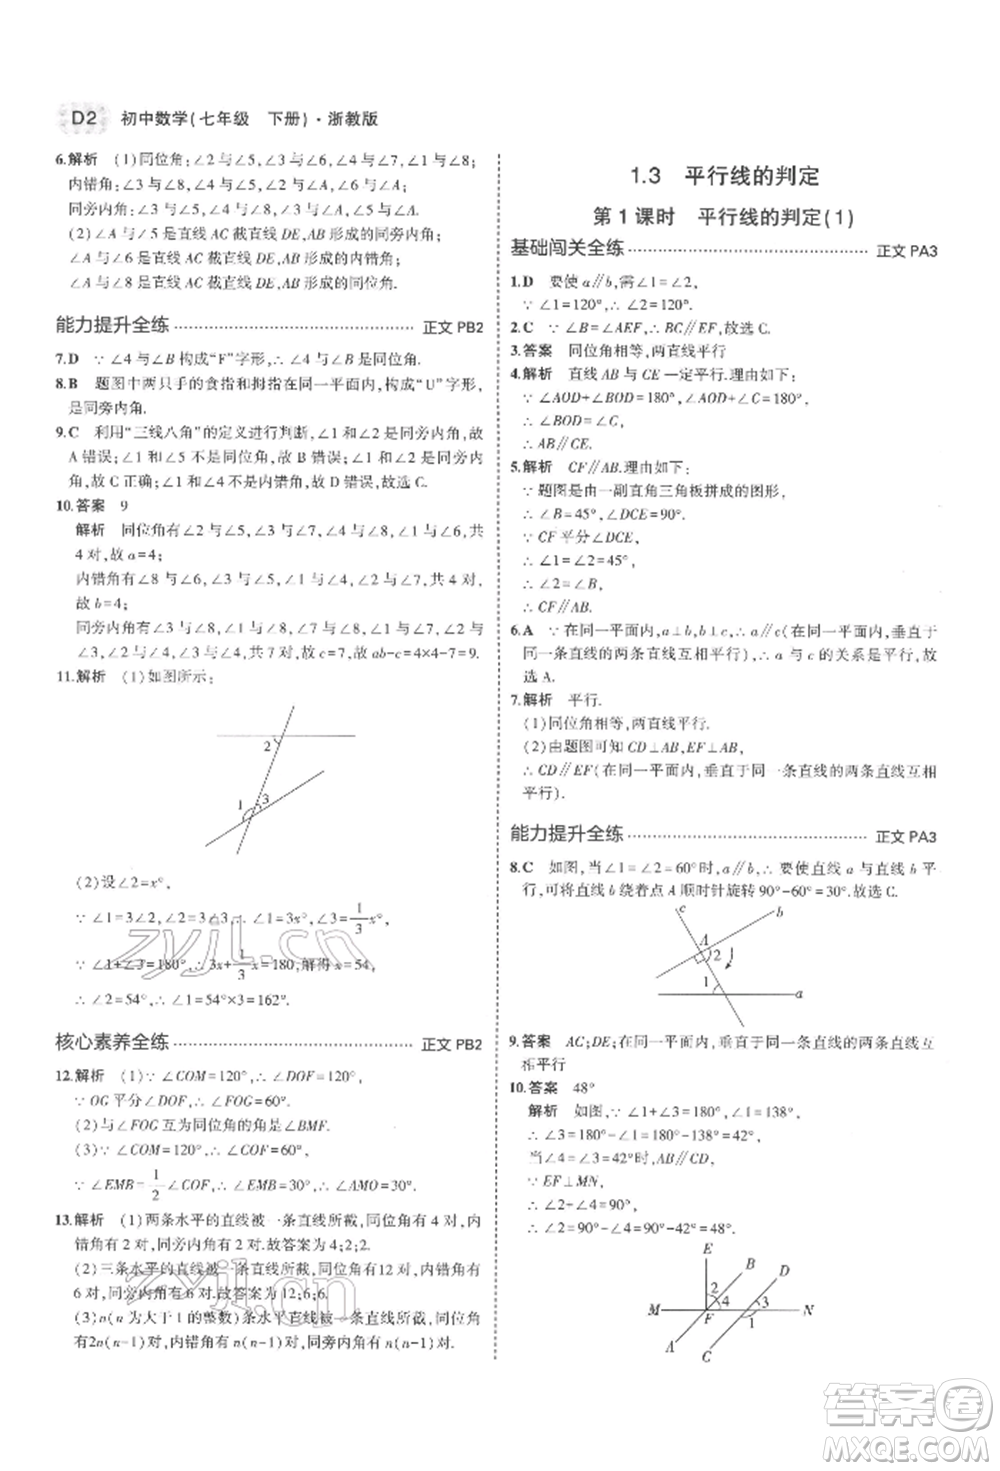 D2 初中数学(七年级 下册)·浙教版
6.解析 (1)同位角:∠2与∠5,∠4与∠7,∠1与∠8;
内错角:∠3与∠8,∠4与∠5,∠1与∠6;
同旁内角:∠3与∠5,∠4与∠8.
(2)∠A与∠2是直线AC与DE被AB形成的同旁内角;
∠A与∠6是直线AC与DE被AB形成的内错角;
∠A与∠8是直线AC与DE被AB形成的同位角.
能力提升全练 正文PB2
7.D ∵∠4与∠B构成“F”字形,∴∠4与∠B是同位角.
8.B 题图中两只手的食指和拇指在同一平面内,构成“U”字形,
是同旁内角.
9.C 利用“三线八角”的定义进行判断,∠1与∠2是同旁内角,故
A错误;∠2与∠5不是同旁内角,故B错误;∠1与∠4是同旁内
角,故C正确;∠1与∠4不是内错角,故D错误.故选C.
10.答案 9
解析 同位角有∠2与∠5,∠3与∠7,∠1与∠4,∠4与∠6,共
4对,故a=4;
内错角有∠8与∠6,∠7与∠1,∠5与∠6,∠4与∠8,共4对,
故b=4;
同旁内角有∠7与∠8,∠1与∠8,∠1与∠6,∠2与∠4,∠3与
∠4,∠3与∠5,∠7与∠6,共7对,故c=7.故ab-c=4×4-7=9.
11.解析 (1)如图所示:
2
1
3
(2)设∠2=x°,
∵∠1=3∠2,∠2=3∠3,∴∠1=3x°,∠3=1/3x°,
∵∠1+∠3=180°,∴3x+1/3x=180,解得x=54,
∴∠2=54°,∴∠1=54°×3=162°.
核心素养全练 正文PB2
12.解析 (1)∵∠COM=120°,∴∠DOF=120°,
∵OG平分∠DOF,∴∠FOG=60°.
(2)与∠FOG互为同位角的角是∠BMF.
(3)∵∠COM=120°,∴∠COF=60°,
∵∠EMB=1/2∠COF,∴∠EMB=30°,∴∠AMO=30°.
13.解析 (1)两条水平的直线被一条直线所截,同位角有4对,
内错角有2对,同旁内角有2对.故答案为4;2;2.
(2)三条水平的直线被一条直线所截,同位角有12对,内错角
有6对,同旁内角有6对.故答案为12;6;6.
(3)n(n为大于1的整数)条水平直线被一条直线所截,同位角
有2n(n-1)对,内错角有n(n-1)对,同旁内角有n(n-1)对.
1.3 平行线的判定
第1课时 平行线的判定(1)
基础闯关全练 正文PA3
1.D 要使a∥b,需∠1=∠2,
∵∠1=120°,∴∠2=120°.
2.C ∵∠B=∠AEF,∴BC∥EF,故选C.
3.答案 同位角相等,两直线平行
4.解析 直线AB与CE一定平行.理由如下:
∵∠AOD+∠BOD=180°,∠AOD+∠C=180°,
∴∠BOD=∠C,
∴AB∥CE.
5.解析 CF∥AB.理由如下:
∵题图是由一副直角三角板拼成的图形,
∴∠B=45°,∠DCE=90°.
∵CF平分∠DCE,
∴∠1=∠2=45°,
∴∠2=∠B,
∴CF∥AB.
6.A ∵在同一平面内,a⊥b,b⊥c,∴a∥c(在同一平面内,垂直于
同一条直线的两条直线互相平行),∴a与c的关系是平行.故
选A.
7.解析 平行.
(1)同位角相等,两直线平行.
(2)由题图可知CD⊥AB,EF⊥AB,
∴CD∥EF(在同一平面内,垂直于同一条直线的两条直线互相
平行).
能力提升全练 正文PA3
8.C 如图,当∠1=∠2=60°时,a∥b,∴要使直线a与直线b平
行,可将直线b绕着点A顺时针旋转90°-60°=30°.故选C.
c
b
A
2
1
a
9.答案 AC;DE;在同一平面内,垂直于同一条直线的两条直线
互相平行
10.答案 48°
解析 如图,∵∠1+∠3=180°,∠1=138°,
∴∠3=180°-138°=42°,
当∠4=∠3=42°时,AB∥CD,
∵EF⊥MN,
∴∠2+∠4=90°,
∴∠2=90°-∠4=90°-42°=48°.
E
B
D
2
4
3
M
F
N
1
A
C
zyjl.cn
zyjl.cn
答案圈
MXQE.COM